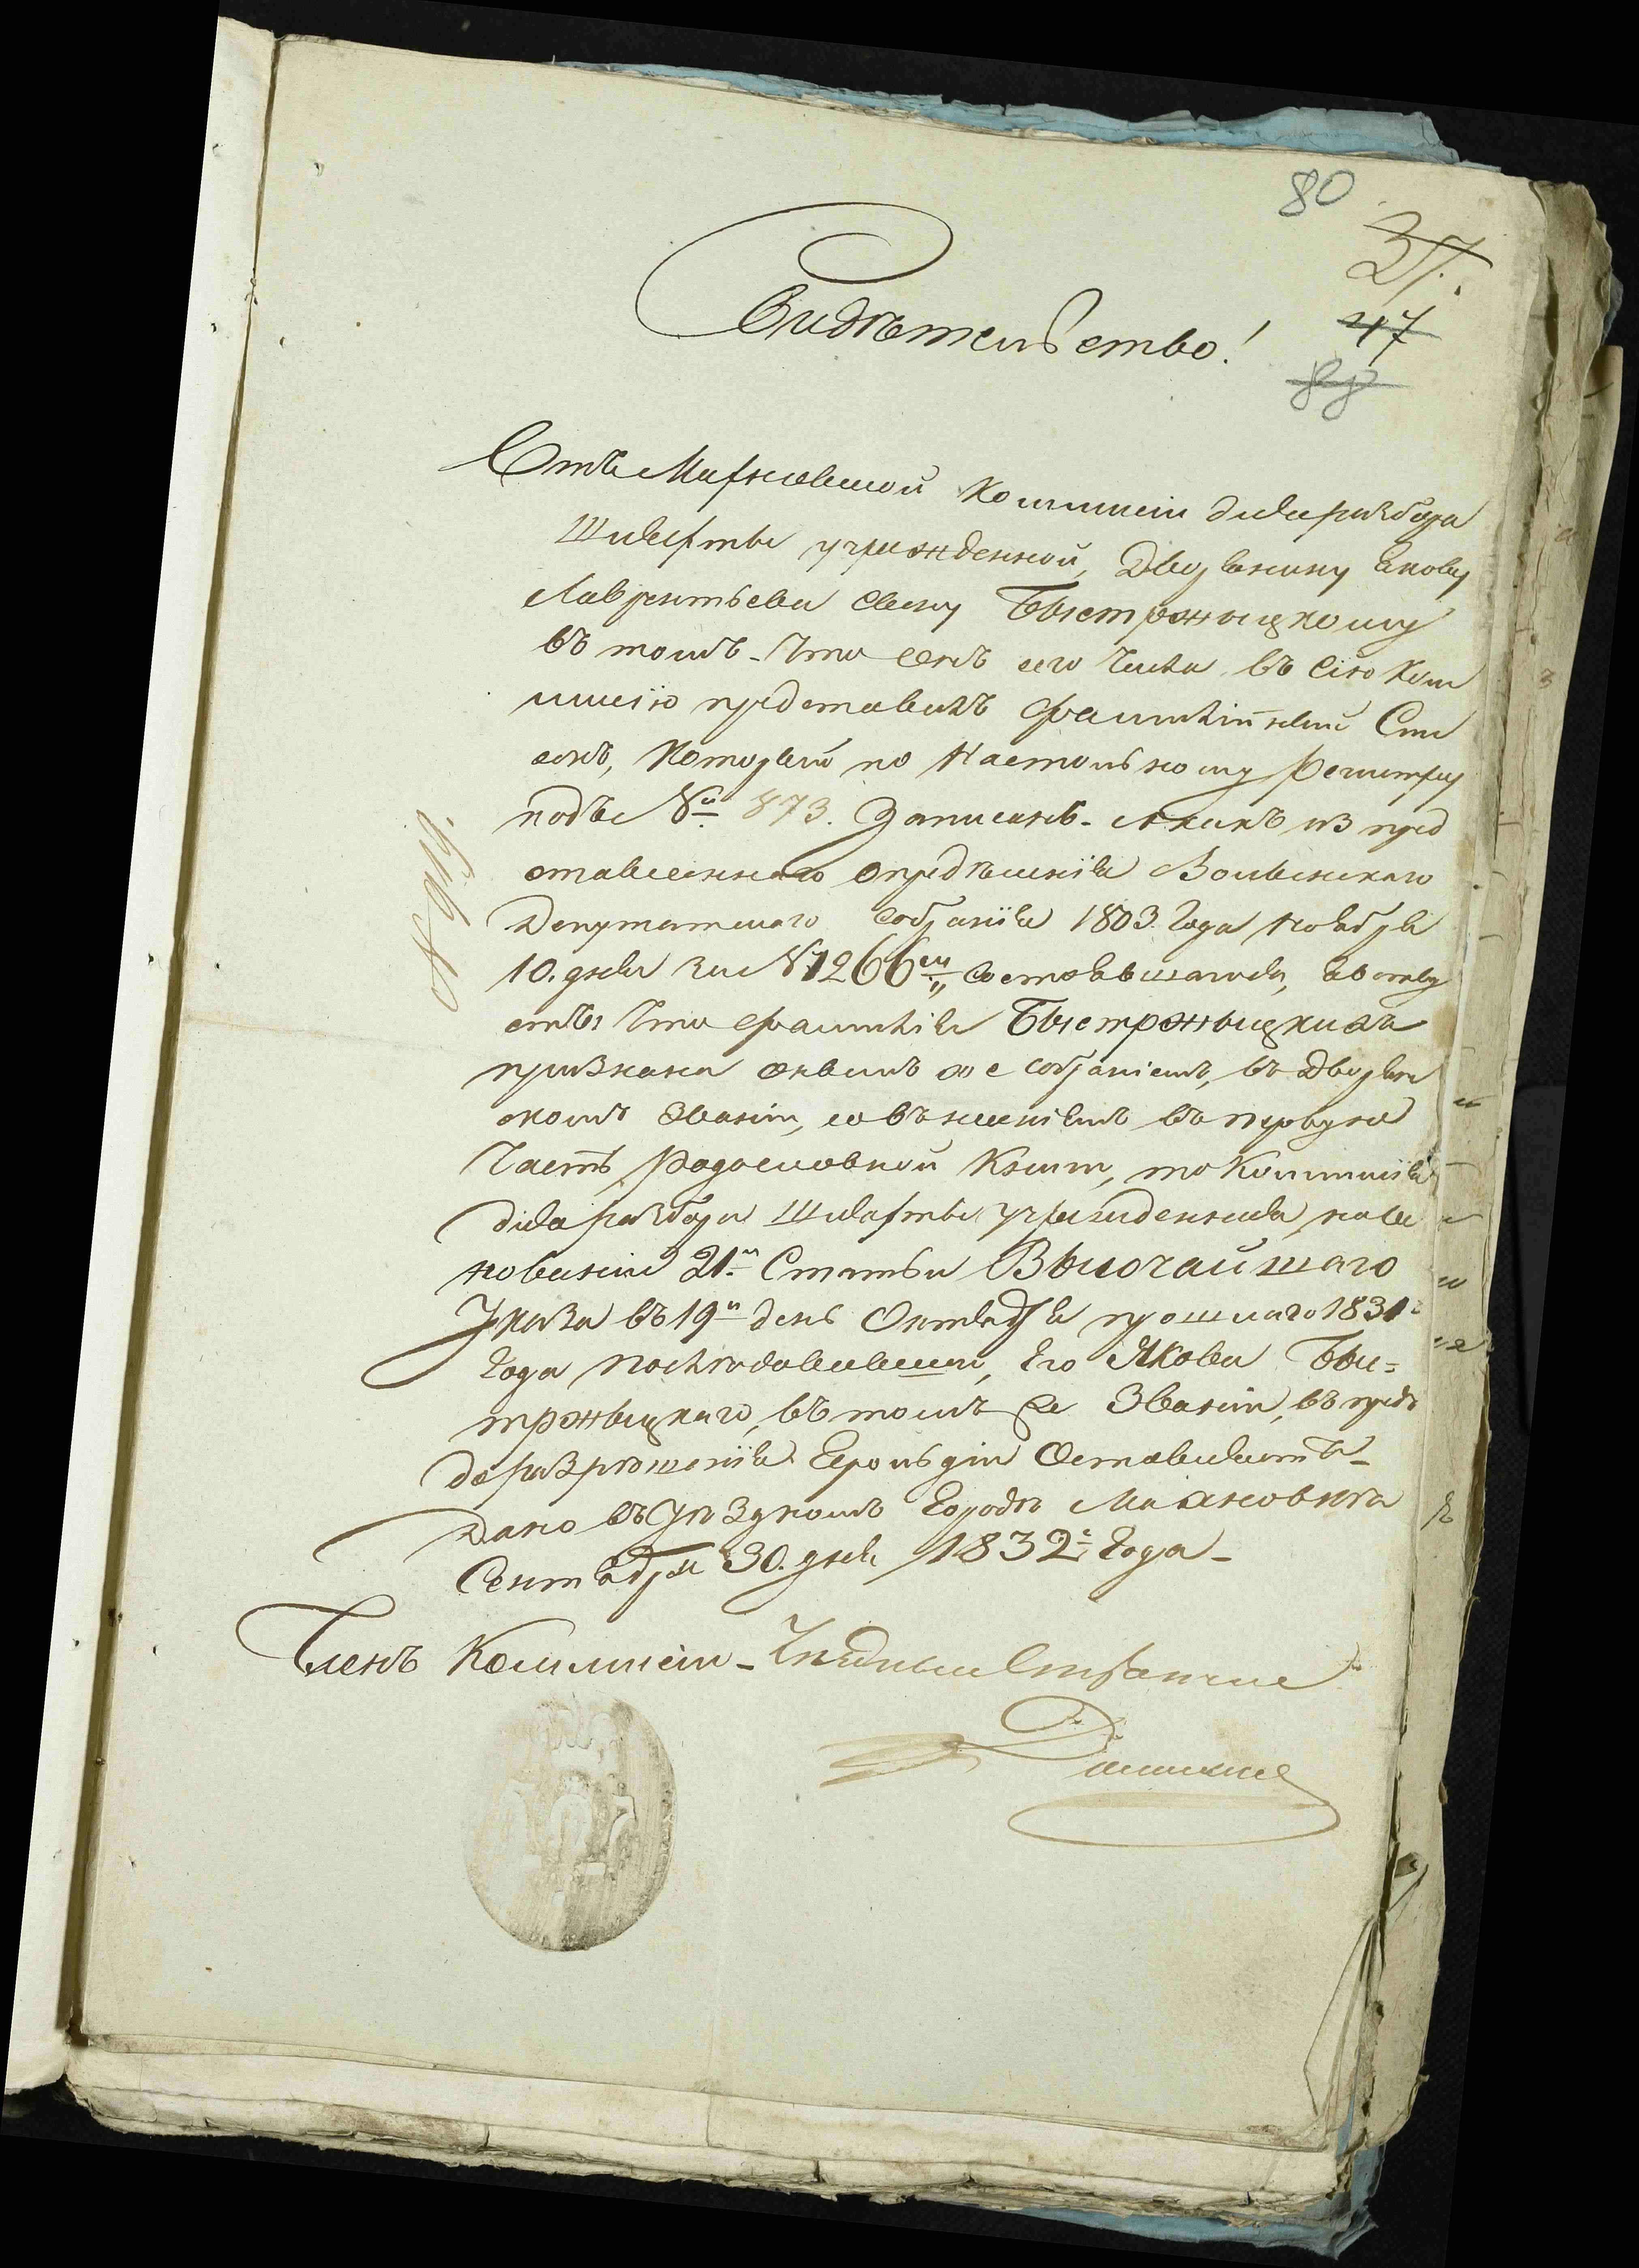 80
37.
47
Свидѣтельство!
Отъ Махновской Коммисіи для разбора
Шляхты учрежденной, Дворянину Якову
Лаврентьеву сыну Быстржыцкому
въ томъ - Что онъ сего числа въ сію Ком
мисію представилъ фамилійный Спи
сокъ, Который по Настольному Регистру
подъ №ⁿ 873. Записанъ - А какъ из пред
ставленнаго опредѣленія Волынскаго
Депутатскаго собранія 1803. Года ноября
10. дня за № 1266ᵐ состоявшагося, явству
етъ: Что фамилія Быстржыцкихъ
признана онымъ же собраніемъ, въ Дворян
скомъ Званіи, со внесеніемъ въ первую
Часть Родословной Книги, то Коммисія
для разбора Шляхты учрежденная, на ос
нованіи 21ⁿ Статьи Высочайшаго
Указа въ 19ⁿ день Октября прошлаго 1831ᵍ
Года последовавшаго, Его Якова Бы=
стржыцкаго, въ томъ же Званіи, впредь
до разрѣшенія Герольдіи Оставляетъ -
Дано въ Уѣздномъ Городѣ Махновкѣ
Сентября 30. дня 1832ᵍ Года -
Членъ Коммисіи - Уѣздный Стряпчій
№ 919.